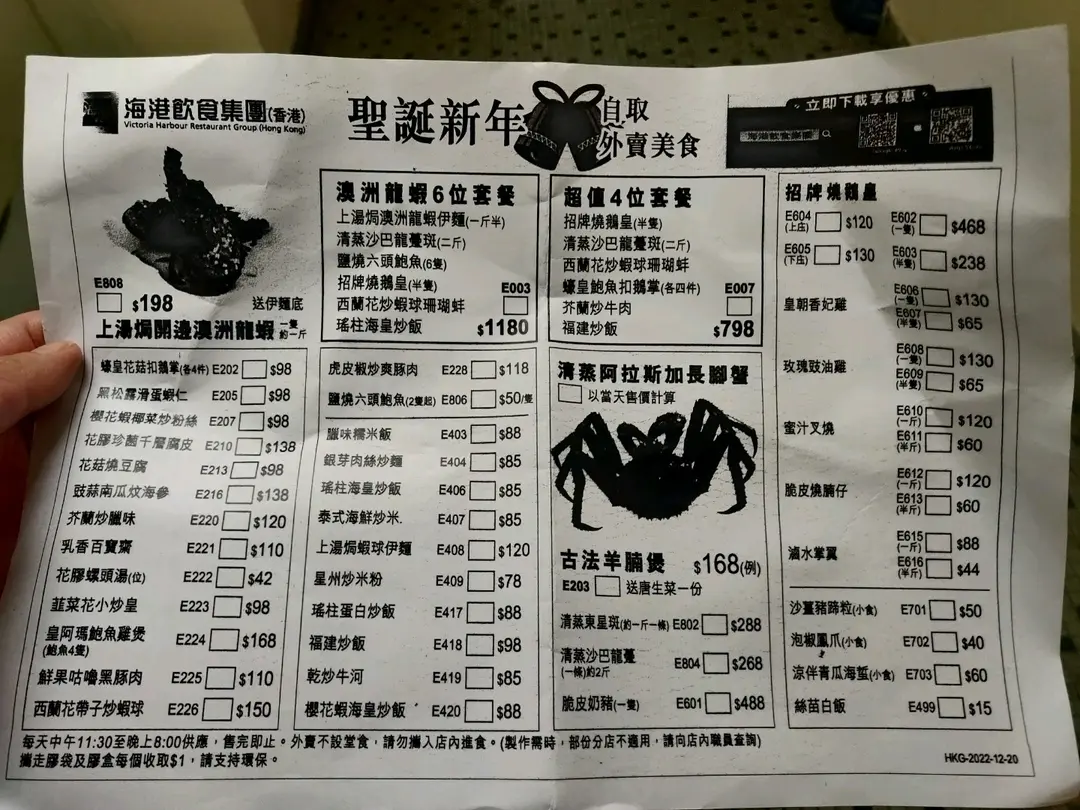 海港飲食集團(香港)
Victoria Harbour Restaurant Group (Hong Kong)
聖誕新年
自取
外賣美食
立即下載享優惠
海港飲食集團
E808
$198 送伊麵底
上湯焗開邊澳洲龍蝦 一隻約一斤
澳洲龍蝦6位套餐
上湯焗澳洲龍蝦伊麵(一斤半)
清蒸沙巴龍躉斑(二斤)
鹽燒六頭鮑魚(6隻)
招牌燒鵝皇(半隻)
西蘭花炒蝦球珊瑚蚌
瑤柱海皇炒飯
E003
$1180
超值4位套餐
招牌燒鵝皇(半隻)
清蒸沙巴龍躉斑(二斤)
西蘭花炒蝦球珊瑚蚌
蠔皇鮑魚扣鵝掌(各四件)
芥蘭炒牛肉
福建炒飯
E007
$798
招牌燒鵝皇
E604 (上庄) $120 E602 (一隻) $468
E605 (下庄) $130 E603 (半隻) $238
皇朝香妃雞
E606 (一隻) $130
E607 (半隻) $65
玫瑰豉油雞
E608 (一隻) $130
E609 (半隻) $65
蜜汁叉燒
E610 (一斤) $120
E611 (半斤) $60
脆皮燒腩仔
E612 (一斤) $120
E613 (半斤) $60
滷水掌翼
E615 (一斤) $88
E616 (半斤) $44
沙薑豬蹄粒(小食) E701 $50
泡椒鳳爪(小食) E702 $40
涼伴青瓜海蜇(小食) E703 $60
絲苗白飯 E499 $15
蠔皇花菇扣鵝掌(各4件) E202 $98
黑松露滑蛋蝦仁 E205 $98
櫻花蝦椰菜炒粉絲 E207 $98
花膠珍菌千層腐皮 E210 $138
花菇燒豆腐 E213 $98
豉蒜南瓜炆海參 E216 $138
芥蘭炒臘味 E220 $120
乳香百寶齋 E221 $110
花膠螺頭湯(位) E222 $42
韮菜花小炒皇 E223 $98
皇阿瑪鮑魚雞煲 E224 $168
(鮑魚4隻)
鮮果咕嚕黑豚肉 E225 $110
西蘭花帶子炒蝦球 E226 $150
虎皮椒炒爽豚肉 E228 $118
鹽燒六頭鮑魚(2隻起) E806 $50/隻
臘味糯米飯 E403 $88
銀芽肉絲炒麵 E404 $85
瑤柱海皇炒飯 E406 $85
泰式海鮮炒米. E407 $85
上湯焗蝦球伊麵 E408 $120
星州炒米粉 E409 $78
瑤柱蛋白炒飯 E417 $88
福建炒飯 E418 $98
乾炒牛河 E419 $85
櫻花蝦海皇炒飯 E420 $88
清蒸阿拉斯加長腳蟹
以當天售價計算
古法羊腩煲 $168(例)
E203 送唐生菜一份
清蒸東星斑(約一斤一條) E802 $288
清蒸沙巴龍躉 E804 $268
(一條)約2斤
脆皮奶豬(一隻) E601 $488
每天中午11:30至晚上8:00供應，售完即止。外賣不設堂食，請勿攜入店內進食。(製作需時，部份分店不適用，請向店內職員查詢)
攜走膠袋及膠盒每個收取$1，請支持環保。
HKG-2022-12-20